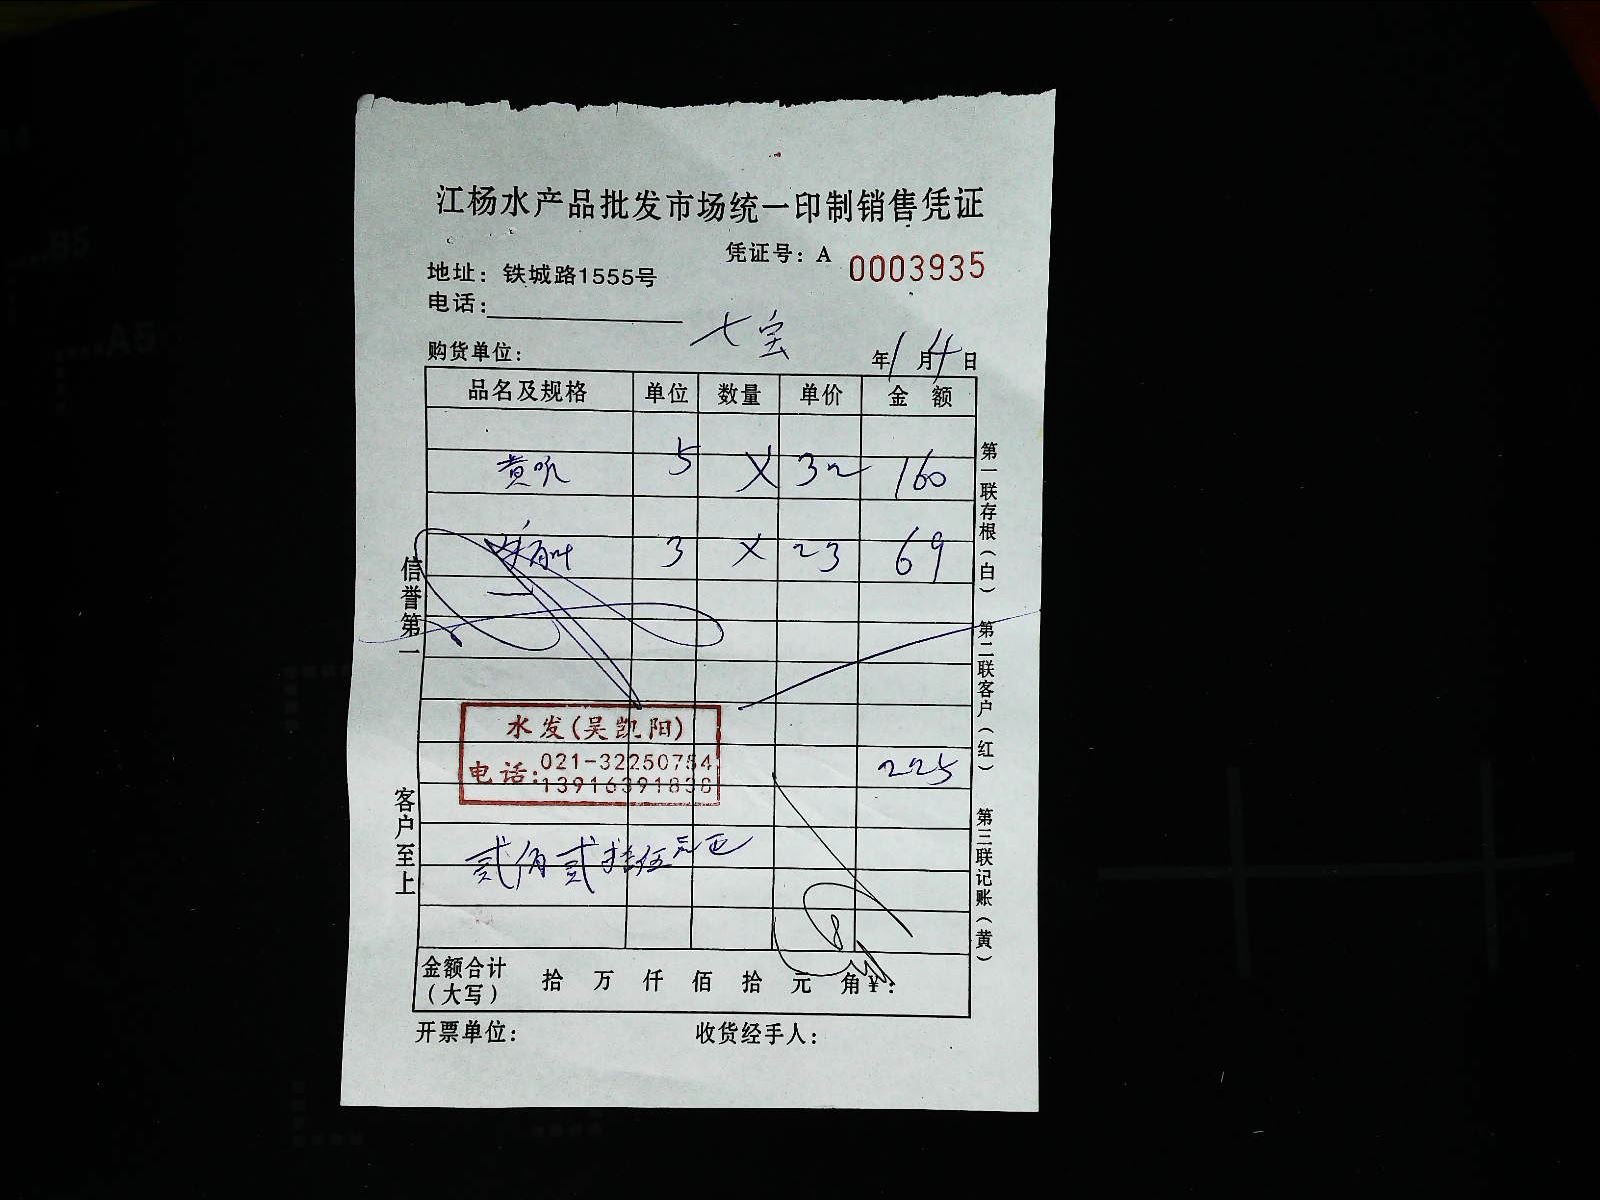 江杨水产品批发市场统一印制销售凭证
凭证号：A 0003935
地址：铁城路1555号
电话：
七宝
购货单位： 年1月4日
品名及规格 单位 数量 单价 金额
黄 5 X 32 160
3 X 23 69
水发(吴凯阳)
电话：021-32250754
13916391838
225
贰佰贰拾伍元正
8
金额合计（大写） 拾 万 仟 佰 拾 元 角 ¥：
开票单位： 收货经手人：
信誉第一
客户至上
第一联存根（白） 第二联客户（红） 第三联记账（黄）